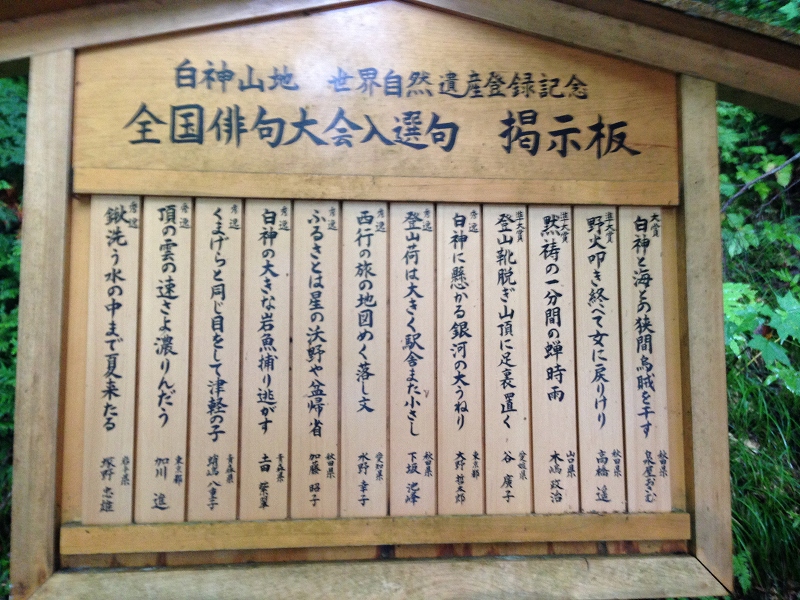 白神山地 世界自然遺産登録記念
全国俳句大会入選句 掲示板
大賞
白神と海との狭間烏賊を干す
秋田県
泉屋おさむ
準大賞
野火叩き終へて女に戻りけり
秋田県
高橋 遙
準大賞
黙祷の一分間の蝉時雨
山口県
木嶋 政治
準大賞
登山靴脱ぎ山頂に足裏置く
愛媛県
谷 廣子
秀逸
白神に懸かる銀河の大うねり
東京都
大野 哲太郎
秀逸
登山荷は大きく駅舎また小さし
秋田県
下坂
秀逸
西行の旅の地図めく落し文
愛知県
水野 幸子
秀逸
ふるさとは星の沃野や盆帰省
秋田県
加藤 昭子
秀逸
白神の大きな岩魚捕り逃がす
青森県
土田 紫翠
秀逸
くまげらと同じ目をして津軽の子
青森県
八重子
秀逸
頂の雲の速さよ濃りんだう
東京都
加川
秀逸
鍬洗う水の中まで夏来たる
岩手県
塚野 忠雄